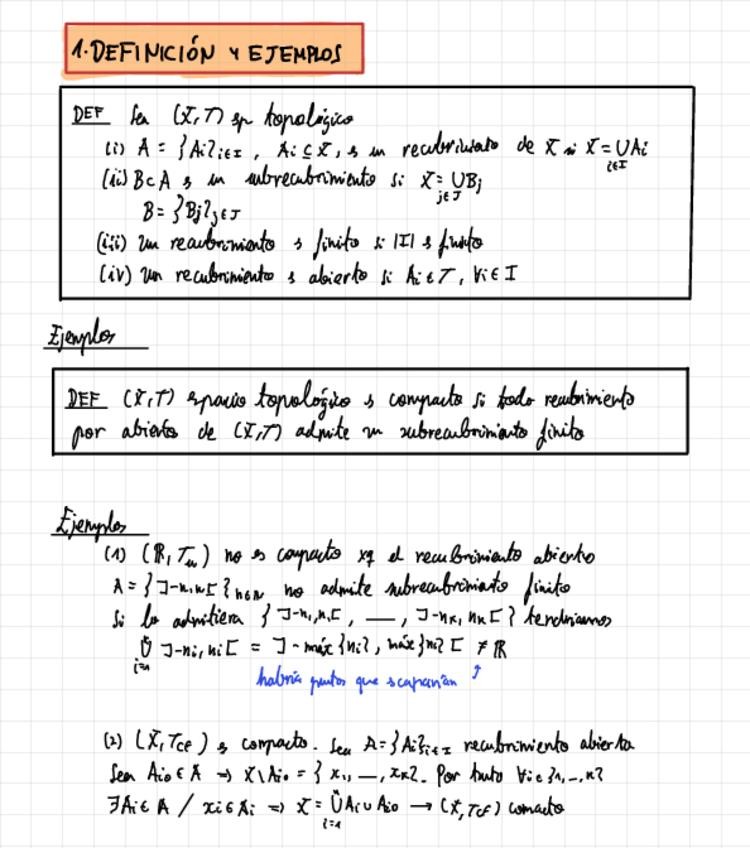 1. DEFINICIÓN Y EJEMPLOS
DEF Sea (X,T) esp topológico
(i) A = {Ai}i∈I , Ai ⊆ X, es un recubrimiento de X si X = ∪ Ai i∈I
(ii) B⊂A es un subrecubrimiento si X = ∪ Bj j∈J
B = {Bj}j∈J
(iii) Un recubrimiento es finito si |I| es finito
(iv) Un recubrimiento es abierto si Ai ∈ T, ∀i ∈ I
Ejemplos
DEF (X,T) espacio topológico es compacto si todo recubrimiento
por abiertos de (X,T) admite un subrecubrimiento finito
Ejemplos
(1) (ℝ, Tu) no es compacto xq el recubrimiento abierto
A = { ]-n,n[ }n∈ℕ no admite subrecubrimiento finito
Si lo admitiera { ]-n1,n1[, —, ]-nk,nk[ } tendríamos
∪ i=1 ]-ni,ni[ = ]-máx{ni}, máx{ni}[ ≠ ℝ
habría puntos que escaparían ↑
(2) (X, TCF) es compacto. Sea A = {Ai}i∈I recubrimiento abierto
Sea Aio ∈ A ⇒ X\Aio = {x1, —, xn}. Por tanto ∀i∈{1,–,n}
∃Ai ∈ A / xi ∈ Ai ⇒ X = n ∪ i=1 Ai ∪ Aio → (X,TCF) comacto